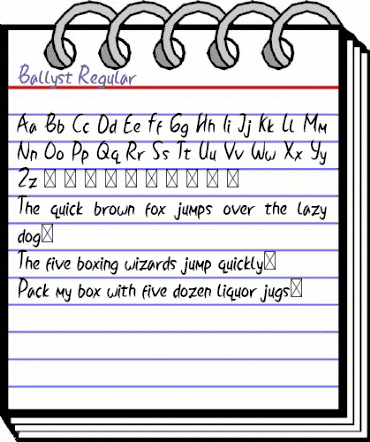 Ballyst Regular
Aa Bb Cc Dd Ee Ff Gg Hh Ii Jj Kk Ll Mm
Nn Oo Pp Qq Rr Ss Tt Uu Vv Ww Xx Yy
Zz
The quick brown fox jumps over the lazy
dog
The five boxing wizards jump quickly
Pack my box with five dozen liquor jugs